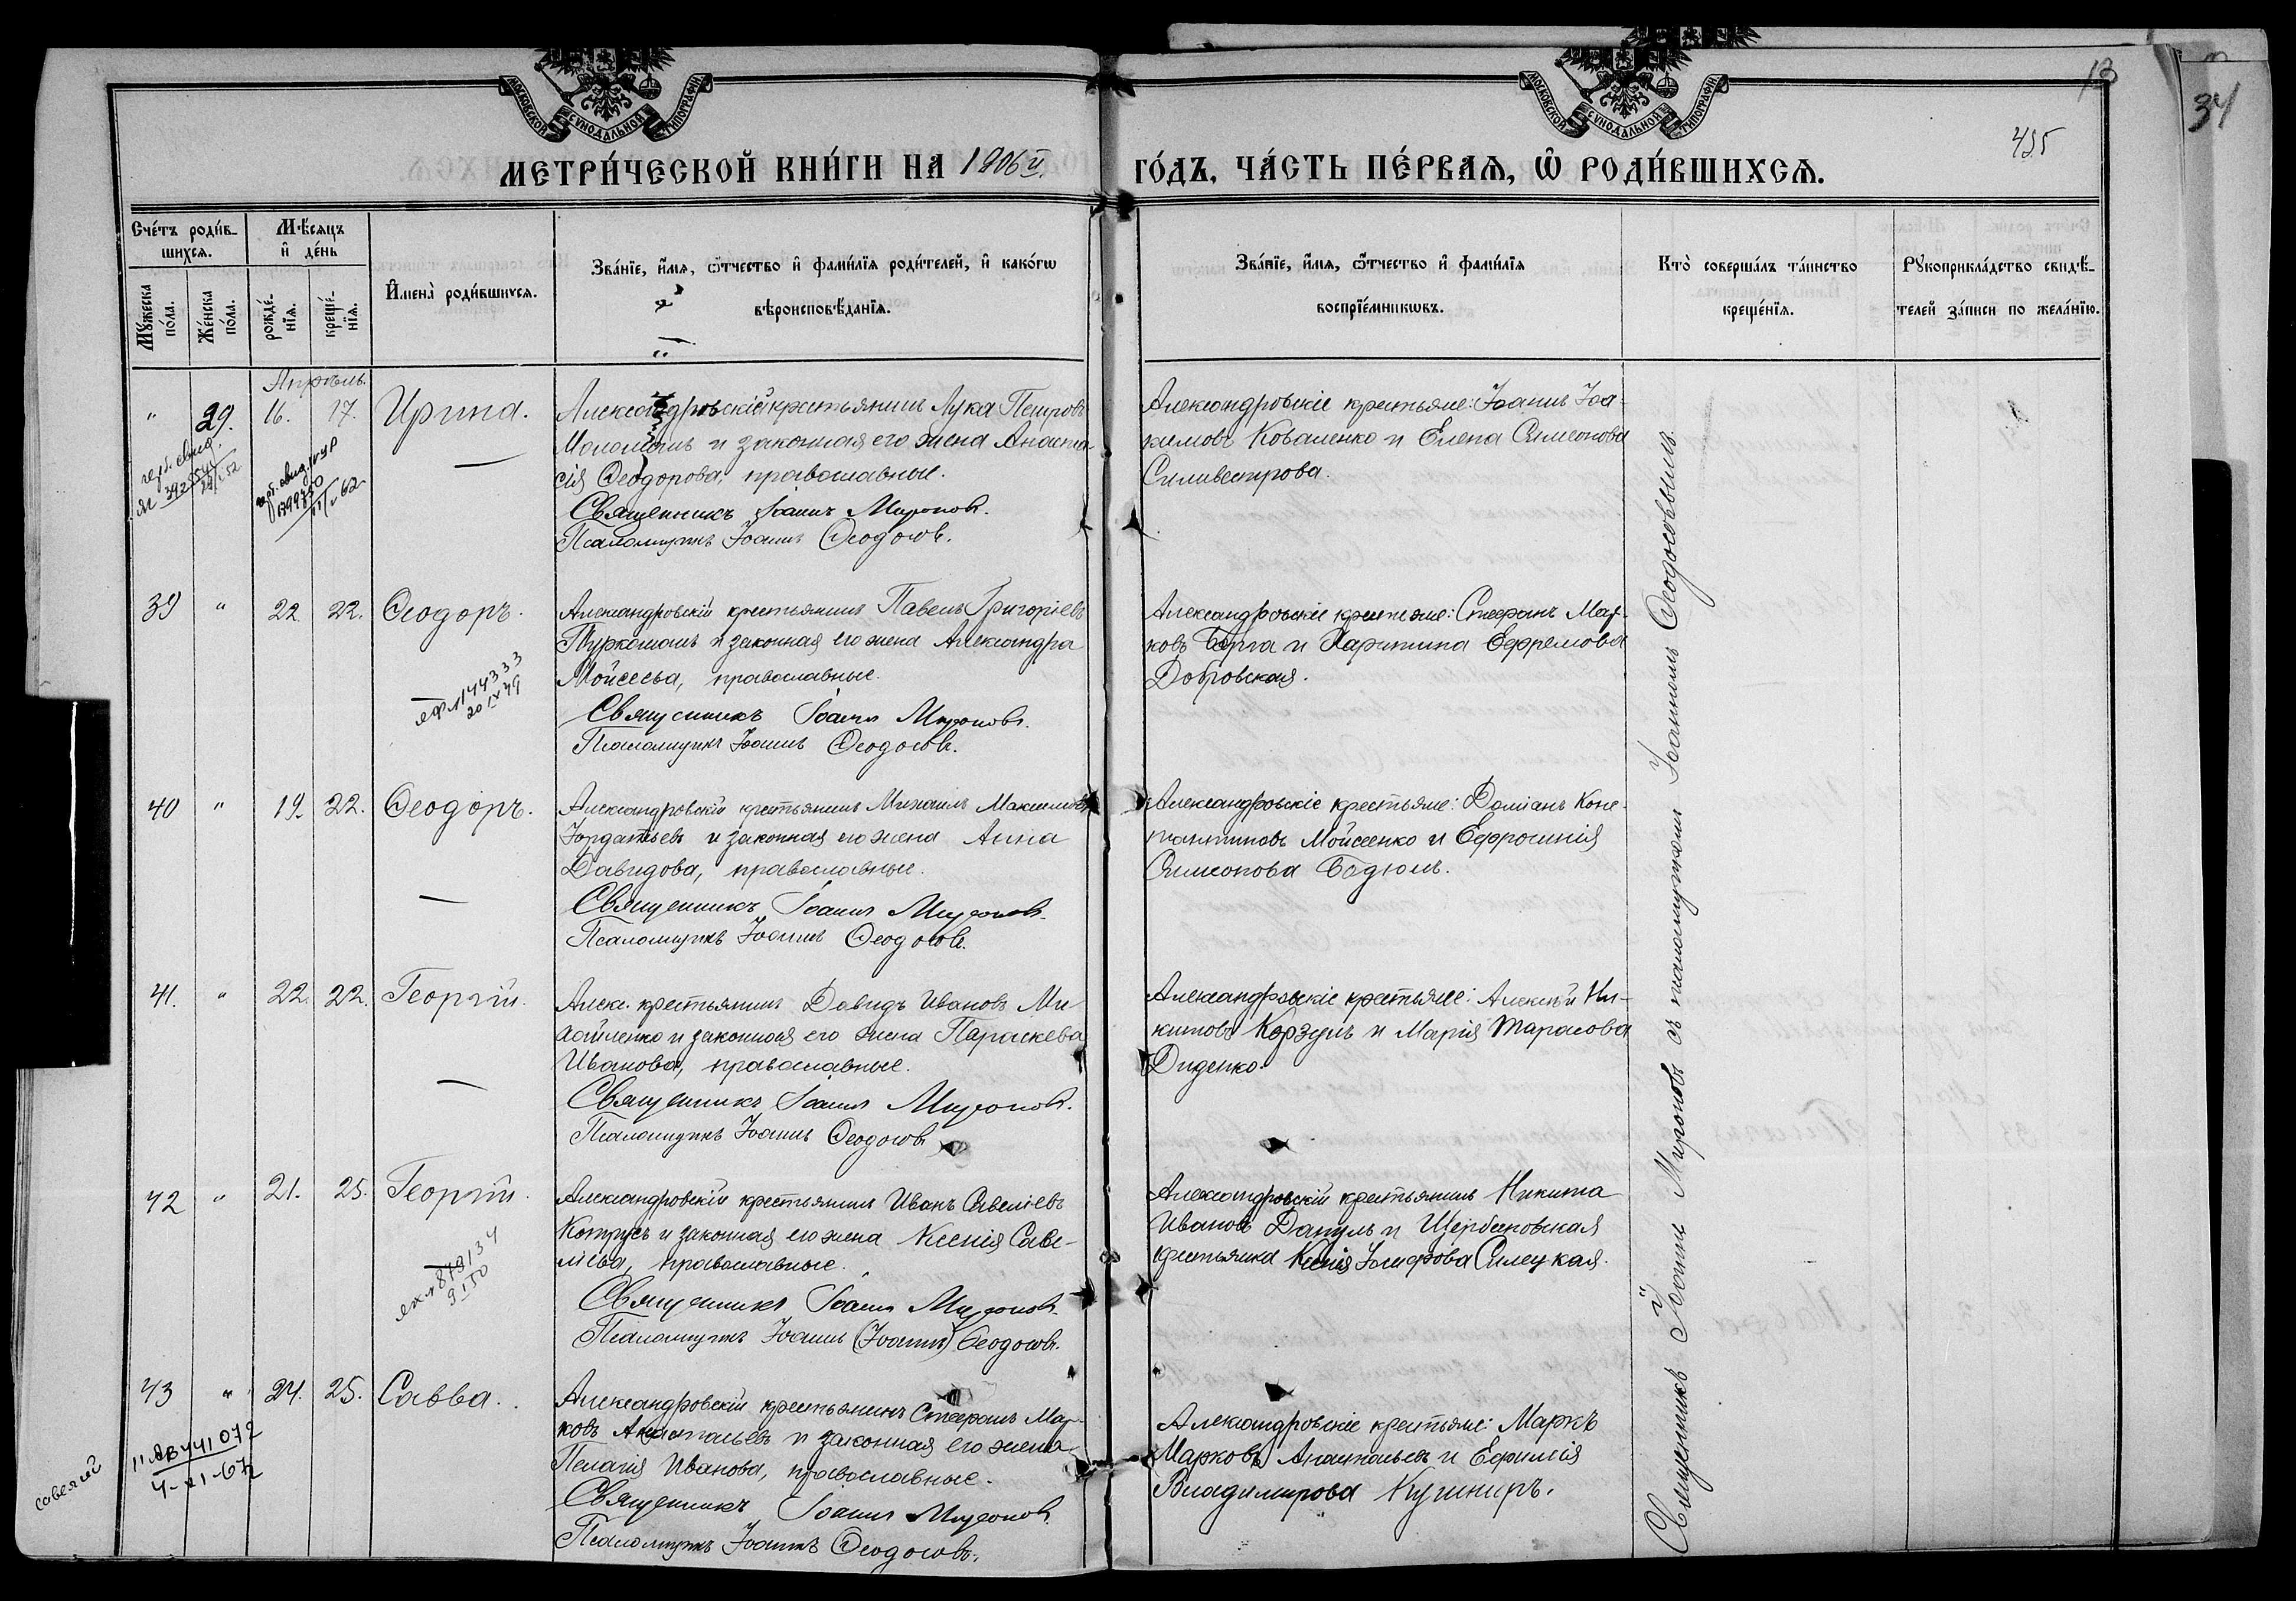 МОСКОВСКОЙ СѴНОДАЛЬНОЙ ТИПОГРАФІИ
МОСКОВСКОЙ СѴНОДАЛЬНОЙ ТИПОГРАФІИ
13
34
435
МЕТРИ́ЧЕСКОЙ КНИ́ГИ НА 1906й ГО́ДЪ, ЧА́СТЬ ПЕ́РВАѦ, Ѡ҆ РОДИ́ВШИХСѦ.
Сче́тъ роди́в-
шихсѧ.
Мꙋжеска по́ла.
Же́нска по́ла.
Мѣ́сѧцъ
и҆ де́нь
рожде́-
нїѧ.
креще́-
нїѧ.
И҆мена̀ роди́вшихсѧ.
Зва́нїе, и҆́мѧ, ѻ҆́тчество и҆ фами́лїѧ роди́телей, и҆ како́гѡ
вѣроисповѣ́данїѧ.
Зва́нїе, и҆́мѧ, ѻ҆́тчество и҆ фами́лїѧ
воспрїе́мникѡвъ.
Кто̀ соверша́лъ та́инство
креще́нїѧ.
Рꙋкоприкла́дство свидѣ́-
телей за́писи по жела́нїю.
Апрѣль.
" 29. 16. 17. Ирина.
Александровскій крестьянинъ Лука Петровъ
и законная его жена Анаста-
сія Ѳеодорова, православные.
Священникъ Іоаннъ Мироновъ.
Псаломщикъ Іоаннъ Ѳеодосовъ.
Александровскіе крестьяне: Іоаннъ Іоа-
кимовъ Коваленко и Елена Симеонова
Силивестрова.
39 " 22 22. Ѳеодоръ.
144333
20 IX 49
Александровскій крестьянинъ Павелъ Григоріевъ
Туркоманъ и законная его жена Александра
Мойсеева, православные.
Священникъ Іоаннъ Мироновъ.
Псаломщикъ Іоаннъ Ѳеодосовъ.
Александровскіе крестьяне: Стефанъ Мар-
ковъ и Харитина Ефремова
Добровская.
40 " 19. 22. Ѳеодоръ.
Александровскій крестьянинъ Михаилъ Максимовъ
и законная его жена Анна
Давидова, православные.
Священникъ Іоаннъ Мироновъ.
Псаломщикъ Іоаннъ Ѳеодосовъ.
Александровскіе крестьяне: Даміанъ Конс-
тантиновъ Мойсеенко и Ефросинія
Симеонова Бодюлъ.
41. " 22. 22. Георгій.
Алекс. крестьянинъ Давидъ Ивановъ Ми-
хайленко и законная его жена Параскева
Иванова, православные.
Священникъ Іоаннъ Мироновъ.
Псаломщикъ Іоаннъ Ѳеодосовъ
Александровскіе крестьяне: Алексѣй Ни-
китовъ Корзунъ и Марія Тарасова
Диденко.
42 " 21. 25. Георгій.
819134
9 I 50
Александровскій крестьянинъ Иванъ Савеліевъ
Котрусъ и законная его жена Ксенія Саве-
ліева, православные.
Священникъ Іоаннъ Мироновъ.
Псаломщикъ Іоаннъ (Іоаннъ) Ѳеодосовъ.
Александровскій крестьянинъ Никита
Ивановъ и Щербановская
крестьянка Ксенія Іосифова Силецкая.
43 " 24. 25. Савва.
савелий
441072
4-XI-67г
Александровскій крестьянинъ Стефанъ Мар-
ковъ Анастасьевъ и законная его жена
Пелагія Иванова, православные.
Священникъ Іоаннъ Мироновъ.
Псаломщикъ Іоаннъ Ѳеодосовъ.
Александровскіе крестьяне: Маркъ
Марковъ Анастасьевъ и Ефимія
Владимирова Кушниръ.
Священникъ Іоаннъ Мироновъ съ псаломщикомъ Іоанномъ Ѳеодосовымъ.